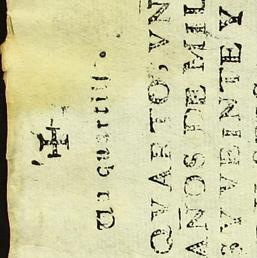 ✠
Un quartillo.
QVARTO, VN
AÑOS DE MIL
Y VEINTE Y